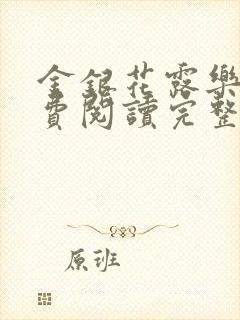 金銀花露樂
費閱讀完整
原班